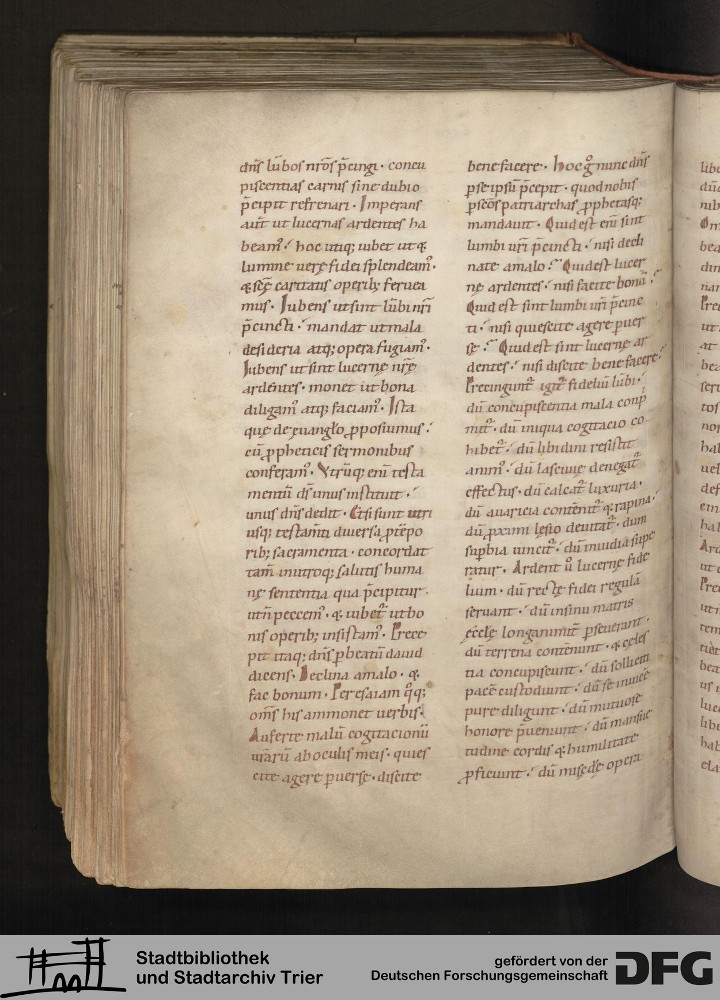 dn̄s lūbos nr̄os p̄cingi · concu
piscentias carnis sine dubio
p̄cipit refrenari · Imperans
aūt ut lucernas ardentes ha
beam᷒ · hoc utiq; iubet ut &
lumine uerę fidei splendeam᷒ ·
& sc̄ę caritatis operib; feruea
mus · Iubens ut sint lūbi nr̄i
p̄cincti · mandat ut mala
desideria atq; opera fugiam᷒ ·
Iubens ut sint lucernę nr̄ę
ardentes · monet ut bona
diligam᷒ atq; faciam᷒ · Ista
que de euangl̄o p̄posuimus ·
cū ꝓpheticis sermonibus
conferam᷒ · Vtrūq; enī testa
mentū d̄s unus instituit ·
unus dn̄s dedit · Etsi sunt utri
usq; testam̄ti diuersa ꝓ tēpo
rib; sacramenta · concordat
tam̄ in utroq; salutis huma
nę sententia qua p̄cipitur
ut n̄ peccem᷒ · & iubet᷒ ut bo
nis operib; insistam᷒ · Prece
pit itaq; dn̄s p beatū dauid
dicens · Declina a malo · &
fac bonum · Per esaiam q᷒q;
om̄s his ammonet uerbis ·
Auferte malū cogitacionū
urārū ab oculis meis · quies
cite agere ꝑuerse · discite
bene facere · Hoc g̊ nunc dn̄s
ꝑ se ipsū p̄cepit · quod nobis
ꝑ sc̄os patriarchas ꝓphetasq;
mandauit · Quid est enī sint
lumbi ur̄i p̄cincti · nisi decli
nate a malo · Quid est lucer
nę ardentes · nisi facite bonū ·
Quid est sint lumbi ur̄i p̄cinc
ti · nisi quiescite agere ꝑuer
sę · Quid est sint lucernę ar
dentes · nisi discite bene facere ·
Precingunt᷒ igit᷒ fideliū lūbi ·
dū concupiscentia mala conp̄
mit᷒ · dū iniqua cogitacio co
hibet᷒ · dū libidini resistit
anim᷒ · dū lasciuię denegat᷒
effectus · dū calcat᷒ luxuria ·
dū auaricia contēnit᷒ & rapina ·
dū ꝓximi lęsio deuitat᷒ · dum
supbia uincit᷒ · dū inuidia supe
ratur · Ardent ū lucernę fide
lium · dū rectę fidei regulā
seruant · dū in sinu matris
ęcclę longanimit᷒ ꝑseuerant ·
dū terrena contēnunt · & cęles
tia concupiscunt · dū solliciti
pacē custodiunt · dū se inuicē
pure diligunt · dū mutuo se
honore p̄ueniunt · dū mansue
tudine cordis & humilitate
ꝓficiunt · dū misc̄dię opera
Stadtbibliothek
und Stadtarchiv Trier
gefördert von der
Deutschen Forschungsgemeinschaft
DFG